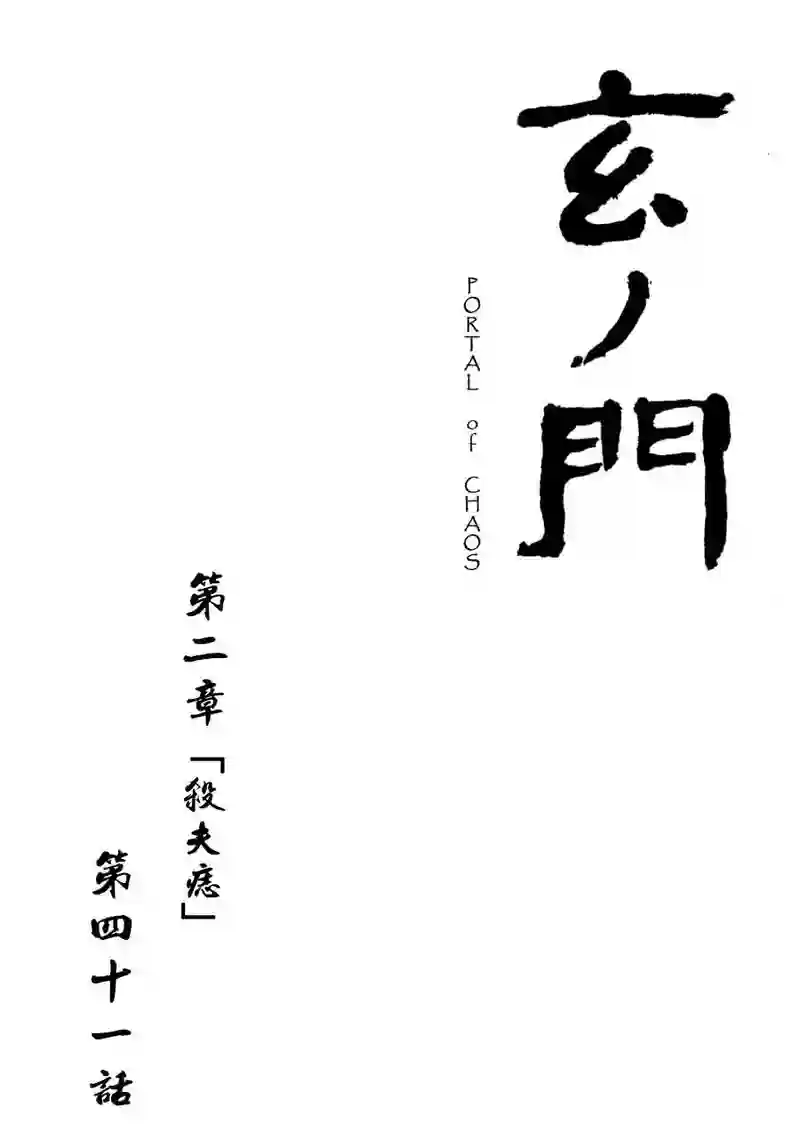 玄ノ門
PORTAL of CHAOS
第二章「殺夫痣」
第四十一話